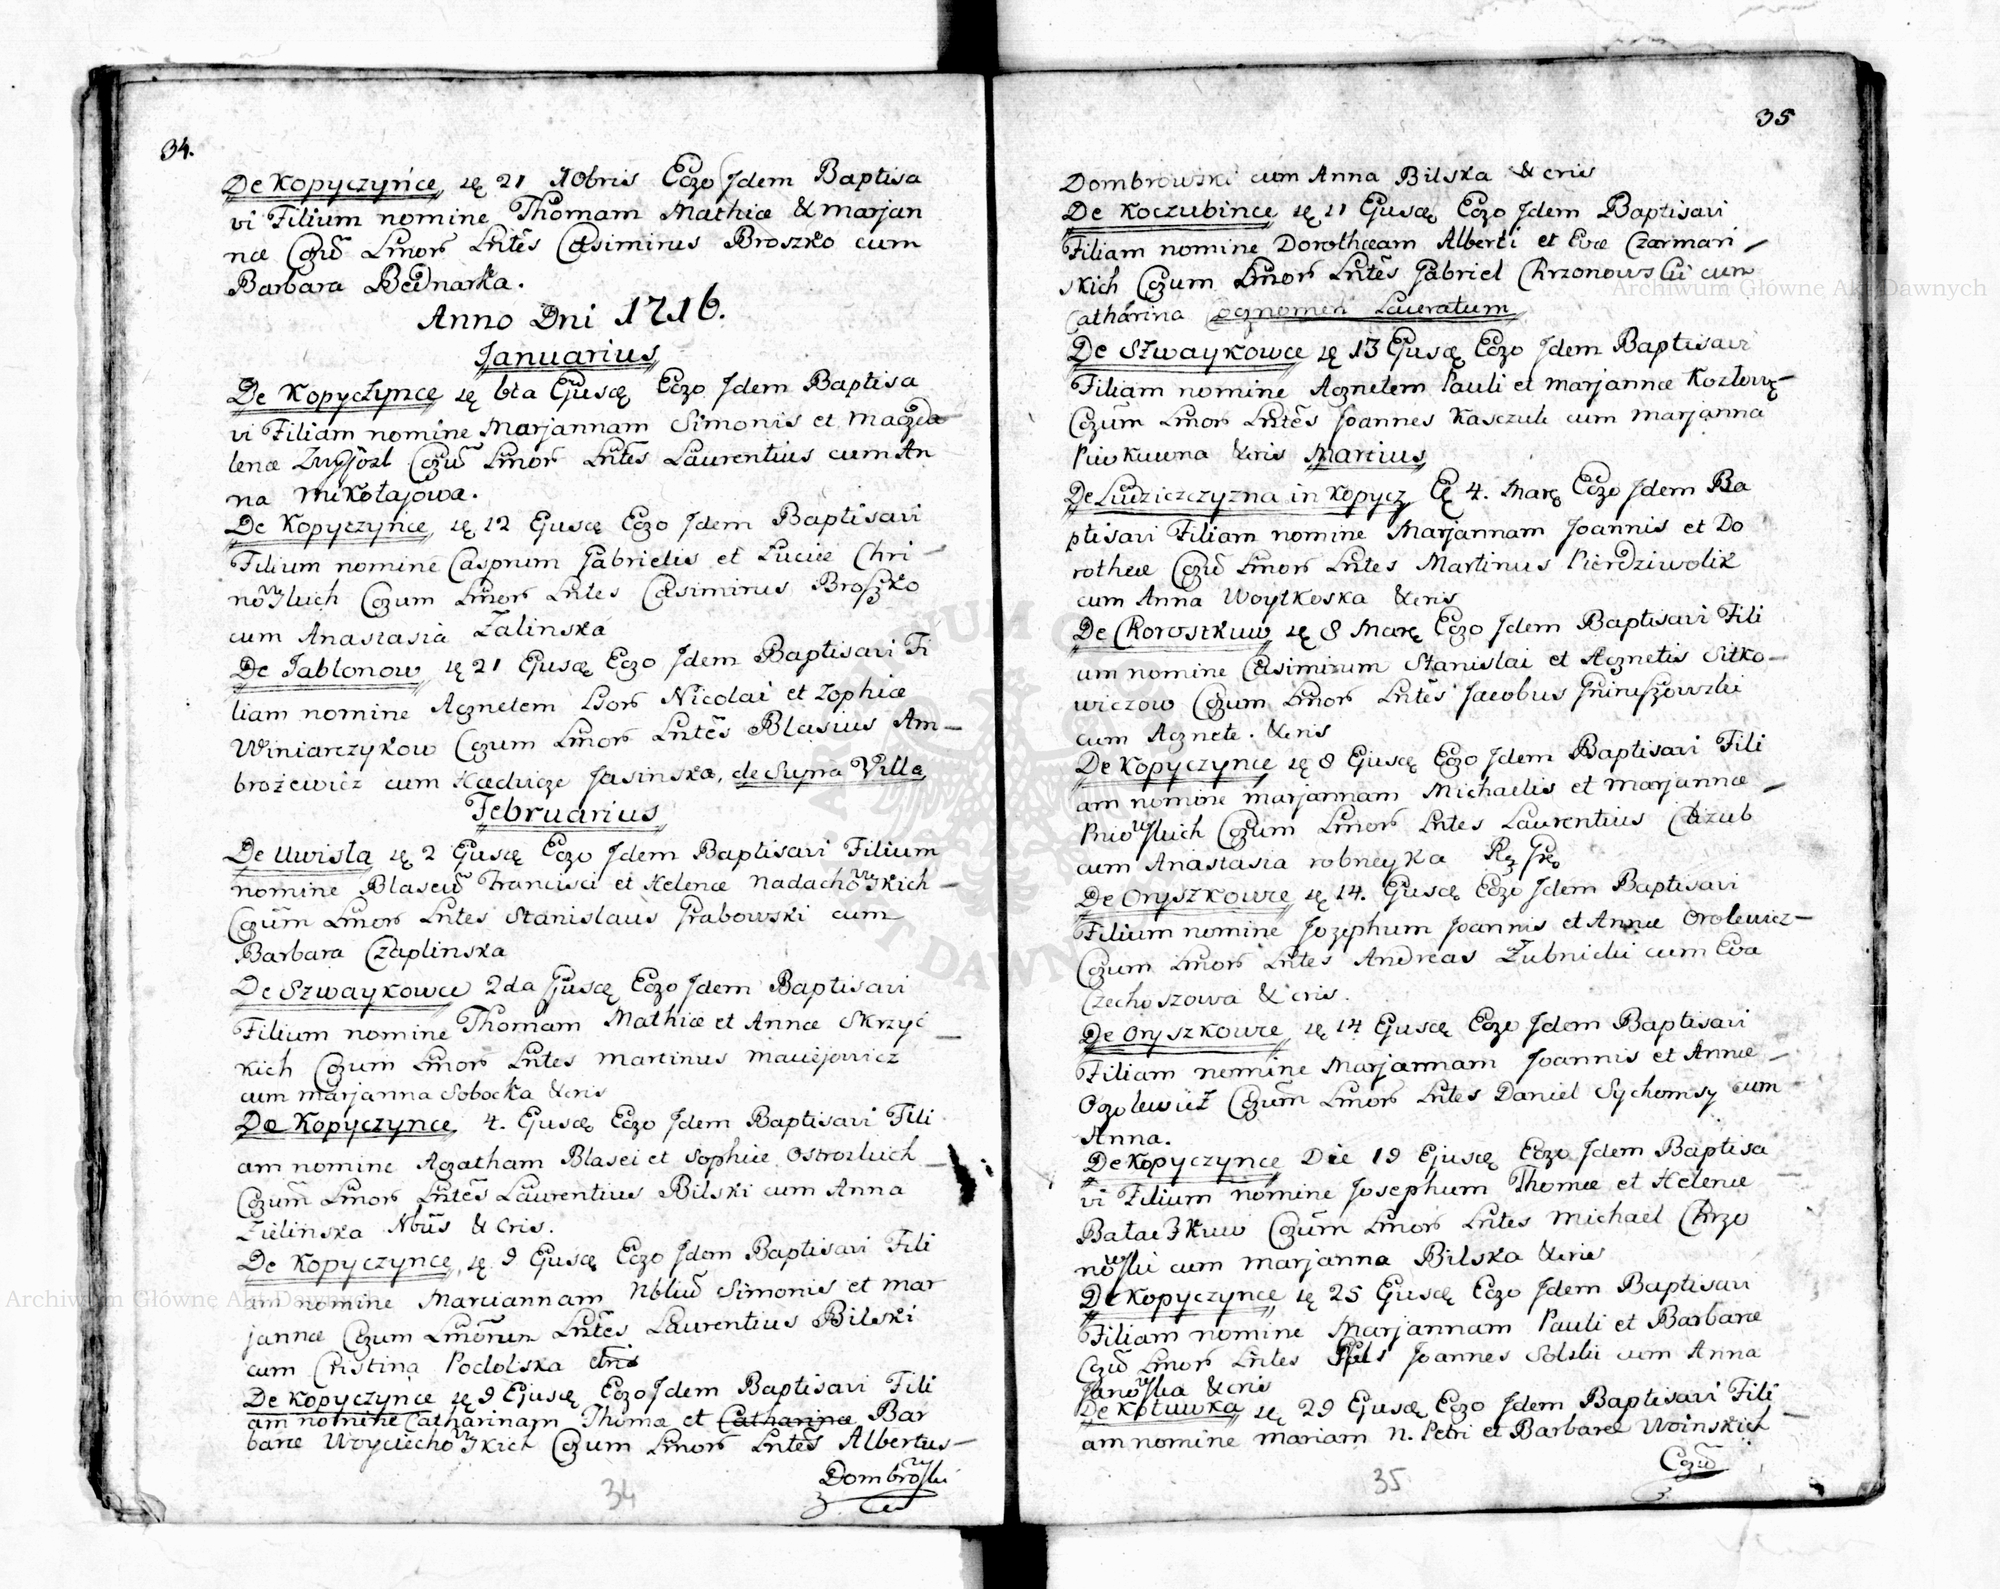 34.
De Kopyczyńce, 21 Xbris Ego Idem Baptisa
vi Filium nomine Thomam Mathiæ & Marjan
næ Cgū Lmor Lntēs Casimirus Broszko cum
Barbara Bednarka.
Anno Dni 1716.
Januarius
De Kopyczyńce 6ta Ejusq Ego Idem Baptisa
vi Filiam nomine Marjannam Simonis et Magda
lenæ Cgū Lmor Lntēs Laurentius cum An
na Mikołajowa.
De Kopyczyńce, 12 Ejusq Ego Idem Baptisavi
Filium nomine Casprum Gabrielis et Luciæ Chri
Cgum Lmor Lntes Casimirus Broszko
cum Anastasia Zalinska
De Jablonow, 21 Ejusq Ego Idem Baptisavi Fi
liam nomine Agnetem Nicolai et Zophiæ
Winiarczykow Cgum Lmor Lntēs Blasius Am-
brożewicz cum Hedvige Jasinska, de Supra Villa
Februarius
De Uwisła 2 Ejusq Ego Idem Baptisavi Filium
nomine Blaseū Francisci et Helenæ Nadachowskich
Cgūm Lmor Lntes Stanislaus Grabowski cum
Barbara Czaplinska
De Szwaykowce 2da Ejusq Ego Idem Baptisavi
Filium nomine Thomam Mathiæ et Annæ Skrzyc
kich Cgum Lmor Lntes Martinus Maciejowicz
cum Marjanna Sobocka &cris
De Kopyczynce 4. Ejusq Ego Idem Baptisavi Fili
am nomine Agatham Blasei et Sophiæ
Cgūm Lmor Lntēs Laurentius Bilski cum Anna
Zielinska Nbūs & Cris.
De Kopyczynce, 9 Ejusq Ego Idem Baptisavi Fili
am nomine Marciannam Nbliū Simonis et Mar
jannæ Cgum Lmorum Lntēs Laurentius Bilski
cum Cristina Podolska
De Kopyczynce 9 Ejusq Ego Idem Baptisavi Fili
am nomine Catharinam Thomæ et Catharinæ Bar
baræ Woyciechowskich Cgum Lmor Lntēs Albertus-
Dombrowski
34
35
Dombrowski cum Anna Bilska &cris
De Koczubince 11 Ejusq Ego Idem Baptisavi
Filiam nomine Dorothæam Alberti et Evæ Czarman
skich Cgum Lmor Lntēs Gabriel Chrzonowski cum
Catharina Cognomen
De Szwaykowce 13 Ejusq Ego Idem Baptisavi
Filiam nomine Agnetem Pauli et Marjannæ
Cgūm Lmor Lntēs Joannes Kasczuk cum Marjanna
&cris Martius
De in Kopycz 4. Marq Ego Idem Ba
ptisavi Filiam nomine Marjannam Joannis et Do
rotheæ Cgū Lmor Lntes Martinus Pierdziwolik
cum Anna Woytkoska &cris
De Chorostkuw 8 Marq Ego Idem Baptisavi Fili
um nomine Casimirum Stanislai et Agnetis Sitko-
wiczow Cgum Lmor Lntēs Jacobus
cum Agnete. &cris
De Kopyczynce 8 Ejusq Ego Idem Baptisavi Fili
am nomine Marjannam Michaelis et Marjannæ
Cgum Lmor Lntes Laurentius
cum Anastasia
De Oryszkowce 14. Ejusq Ego Idem Baptisavi
Filium nomine Jozephum Joannis et Annæ
Cgum Lmor Lntes Andreas Zubnicki cum Eva
Czechoszowa & cris.
De Oryszkowce, 14 Ejusq Ego Idem Baptisavi
Filiam nomine Marjannam Joannis et Annæ
Cgūm Lmor Lntes Daniel cum
Anna.
De Kopyczynce Die 19 Ejusq Ego Idem Baptisa
vi Filium nomine Josephum Thomæ et Helenæ
Cgūm Lmor Lntes Michael Chrzo
nowski cum Marjanna Bilska &cris
De Kopyczynce, 25 Ejusq Ego Idem Baptisavi
Filiam nomine Marjannam Pauli et Barbaræ
Cgū Lmor Lntes Joannes Solski cum Anna
&cris
De Kotuwka 29 Ejusq Ego Idem Baptisavi Fili
am nomine Mariam N. Petri et Barbaræ Woinskich
Cgū
35
Archiwum Główne Akt Dawnych
Archiwum Główne Akt Dawnych